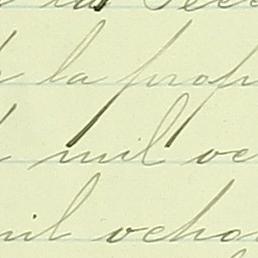 la prop
mil oc
mil ocho